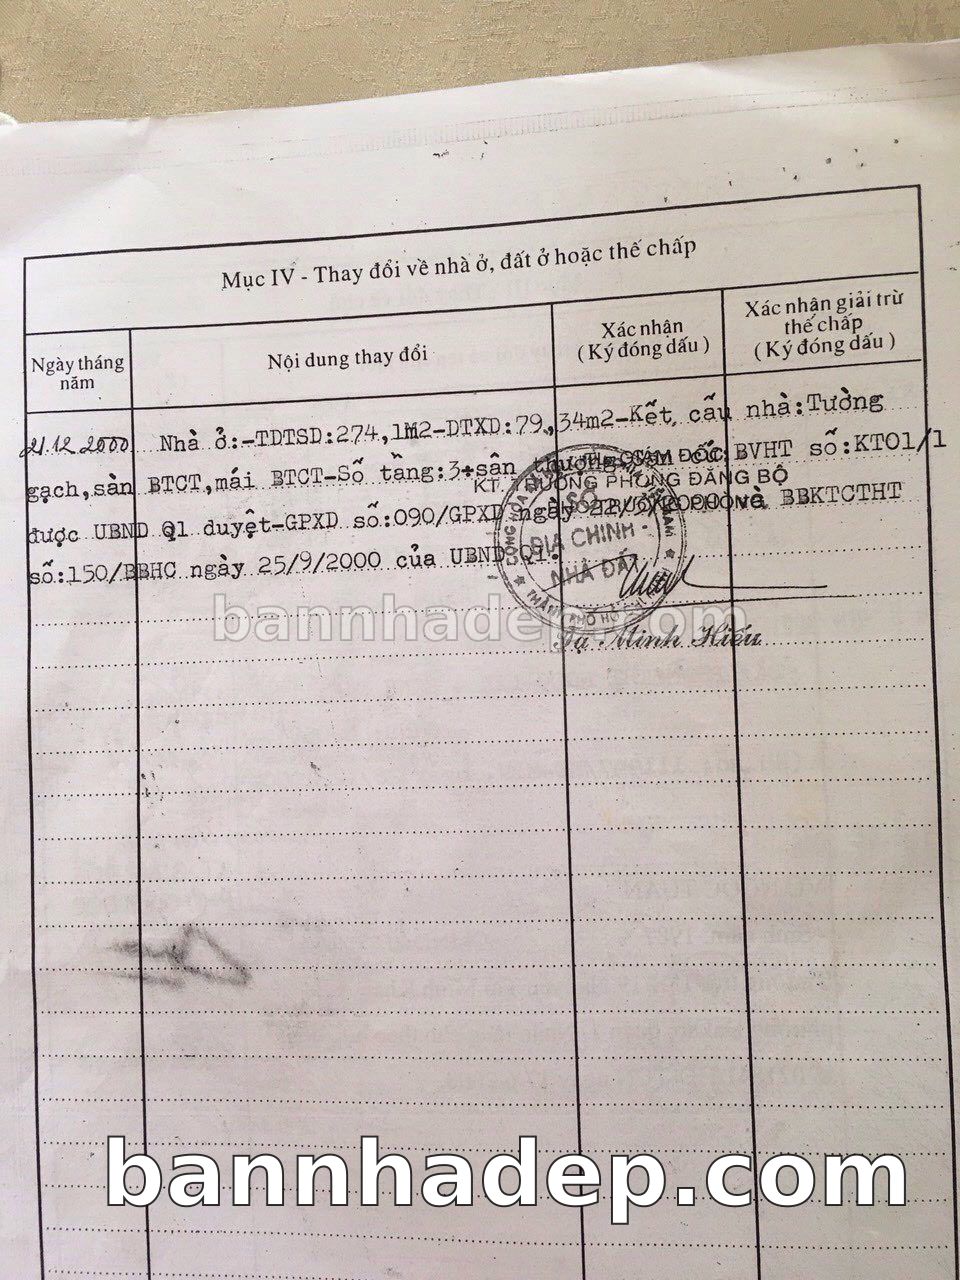 Mục IV - Thay đổi về nhà ở, đất ở hoặc thế chấp
Ngày tháng
năm
Nội dung thay đổi
Xác nhận
( Ký đóng dấu )
Xác nhận giải trừ
thế chấp
( Ký đóng dấu )
21.12.2000
Nhà ở:-TDTSD:274,1M2-DTXD:79,34m2-Kết cấu nhà:Tường
gạch,sàn BTCT,mái BTCT-Số tầng:3+sân thượng BVHT số:KT01/1
được UBND Q1 duyệt-GPXD số:090/GPXD ngày và BBKTCTHT
số:150/BBHC ngày 25/9/2000 của UBND Q1.
GIÁM ĐỐC
KT. TRƯỞNG PHÒNG ĐĂNG BỘ
SỞ
ĐỊA CHÍNH -
NHÀ ĐẤT
THÀNH PHỐ HỒ CHÍ
Minh Hiếu
bannhadep.com
bannhadep.com